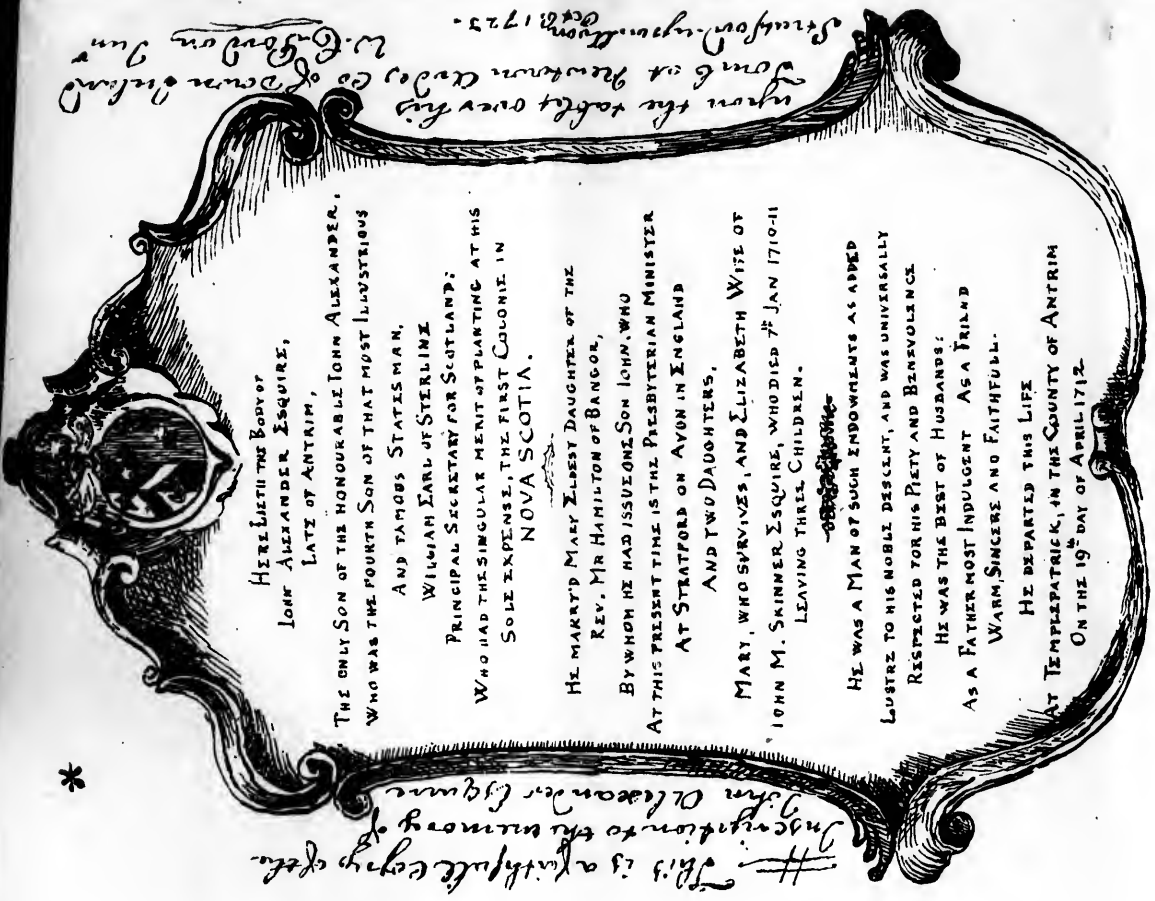 HERE LIETH THE BODY OF
IOHN ALEXANDER ESQUIRE,
LATE OF ANTRIM,
THE ONLY SON OF THE HONOURABLE IOHN ALEXANDER,
WHO WAS THE FOURTH SON OF THAT MOST ILLUSTRIOUS
AND FAMOUS STATESMAN,
WILLIAM EARL OF STERLINE
PRINCIPAL SECRETARY FOR SCOTLAND:
WHO HAD THE SINGULAR MERIT OF PLANTING AT HIS
SOLE EXPENSE, THE FIRST COLONIE IN
NOVA SCOTIA.
HE MARRY'D MARY ELDEST DAUGHTER OF THE
REV. MR HAMILTON OF BANGOR,
BY WHOM HE HAD ISSUE ONE SON IOHN, WHO
AT THIS PRESENT TIME IS THE PRESBYTERIAN MINISTER
AT STRATFORD ON AVON IN ENGLAND
AND TWO DAUGHTERS,
MARY, WHO SURVIVES, AND ELIZABETH WIFE OF
IOHN M. SKINNER ESQUIRE, WHO DIED 7th JAN 1710-11
LEAVING THREE CHILDREN.
HE WAS A MAN OF SUCH ENDOWMENTS AS ADDED
LUSTRE TO HIS NOBLE DESCENT, AND WAS UNIVERSALLY
RESPECTED FOR HIS PIETY AND BENEVOLENCE
HE WAS THE BEST OF HUSBANDS:
AS A FATHER MOST INDULGENT AS A FRIEND
WARM, SINCERE AND FAITHFULL.
HE DEPARTED THIS LIFE
AT TEMPLEPATRICK, IN THE COUNTY OF ANTRIM
ON THE 19th DAY OF APRIL 1712
*
# This is a faithfull Copy of the
Inscription to the memory of
John Alexander Esquire
upon the tablet over his
Tomb at Newtown Ardes Co of Down Ireland
W. C. Gordon Junr
Stratford-upon-Avon
Oct 6. 1723.